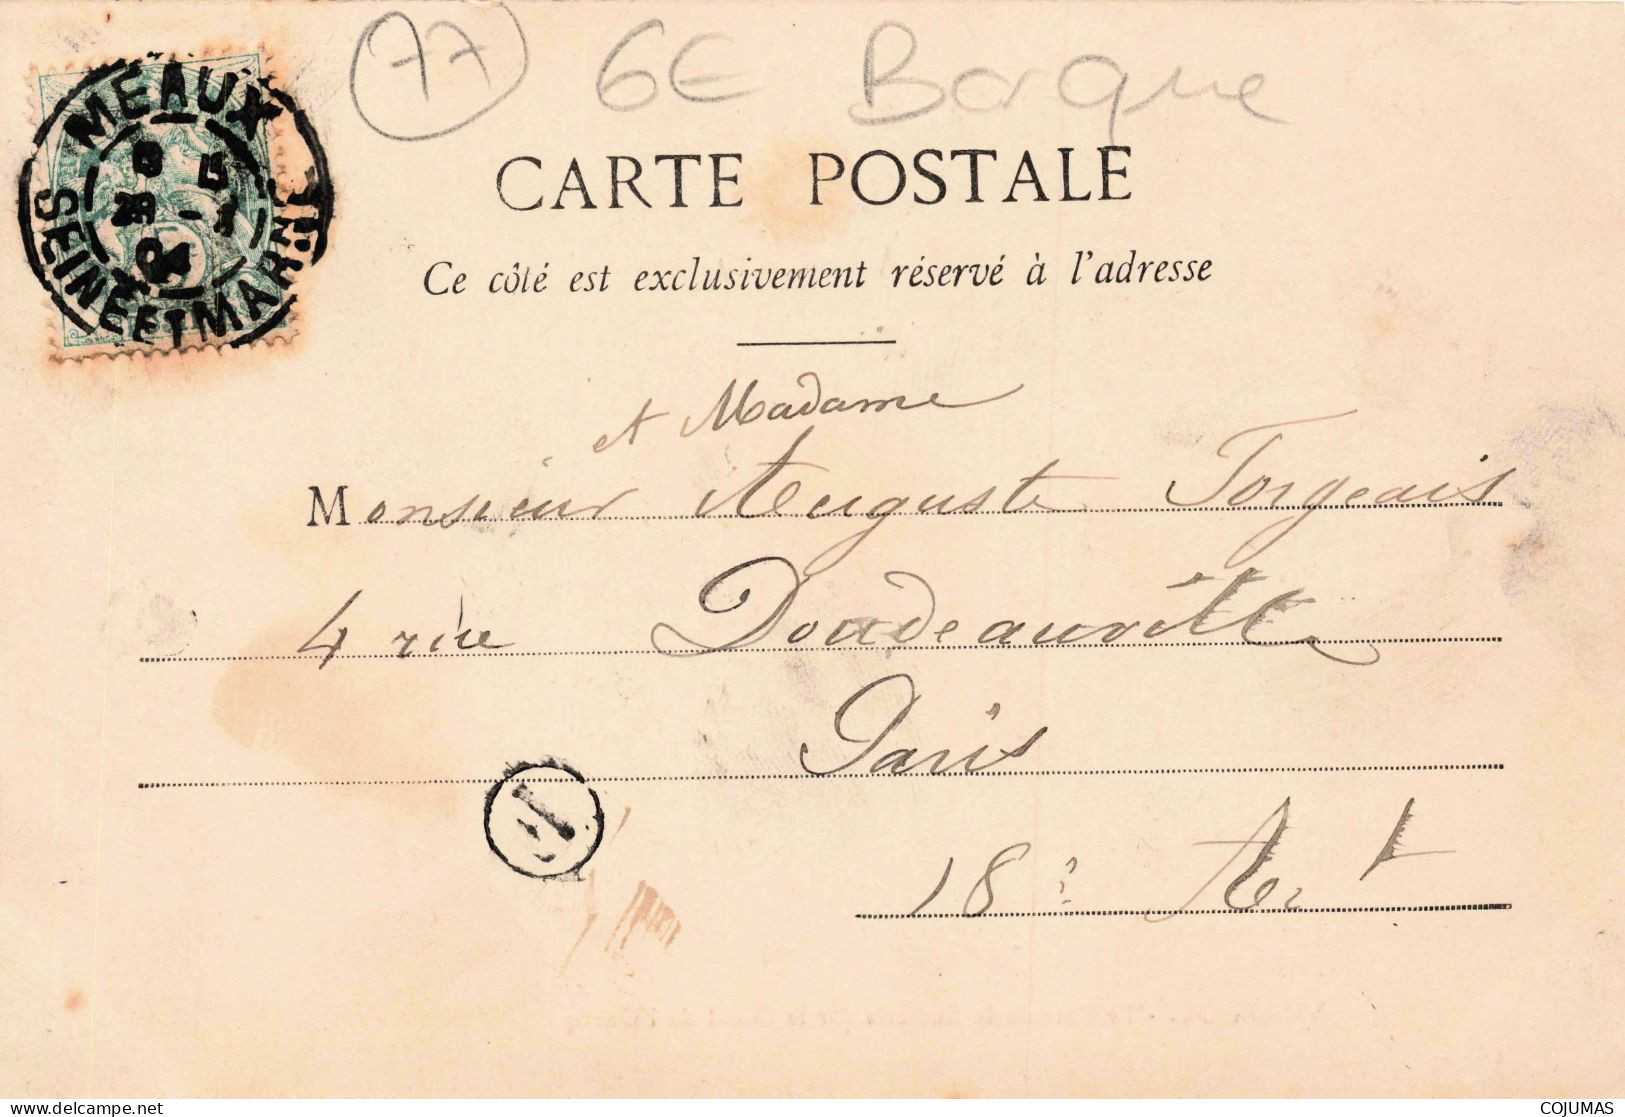 77 6€ Barque
MEAUX
SEINE ET MARNE
04
CARTE POSTALE
Ce côté est exclusivement réservé à l'adresse
et Madame
Monsieur Auguste Forgeais
4 rue Doudeauville
Paris
18e Art
COJUMAS